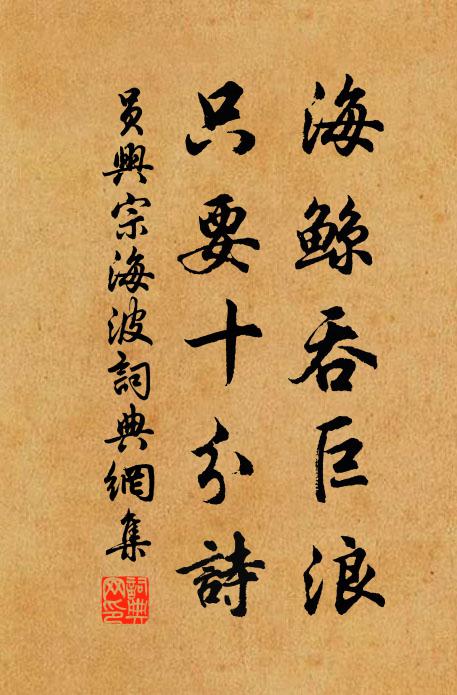 海鯨吞巨浪
只要十分詩
員興宗海波詞典網集
詞典网印